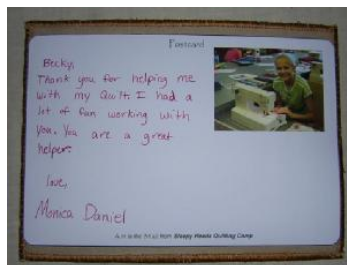 Postcard
Becky,
Thank you for helping me
with my Quilt. I had a
lot of fun working with
you. You are a great
helper.
love,
Monica Daniel
from Sleepy Heads Quilting Camp